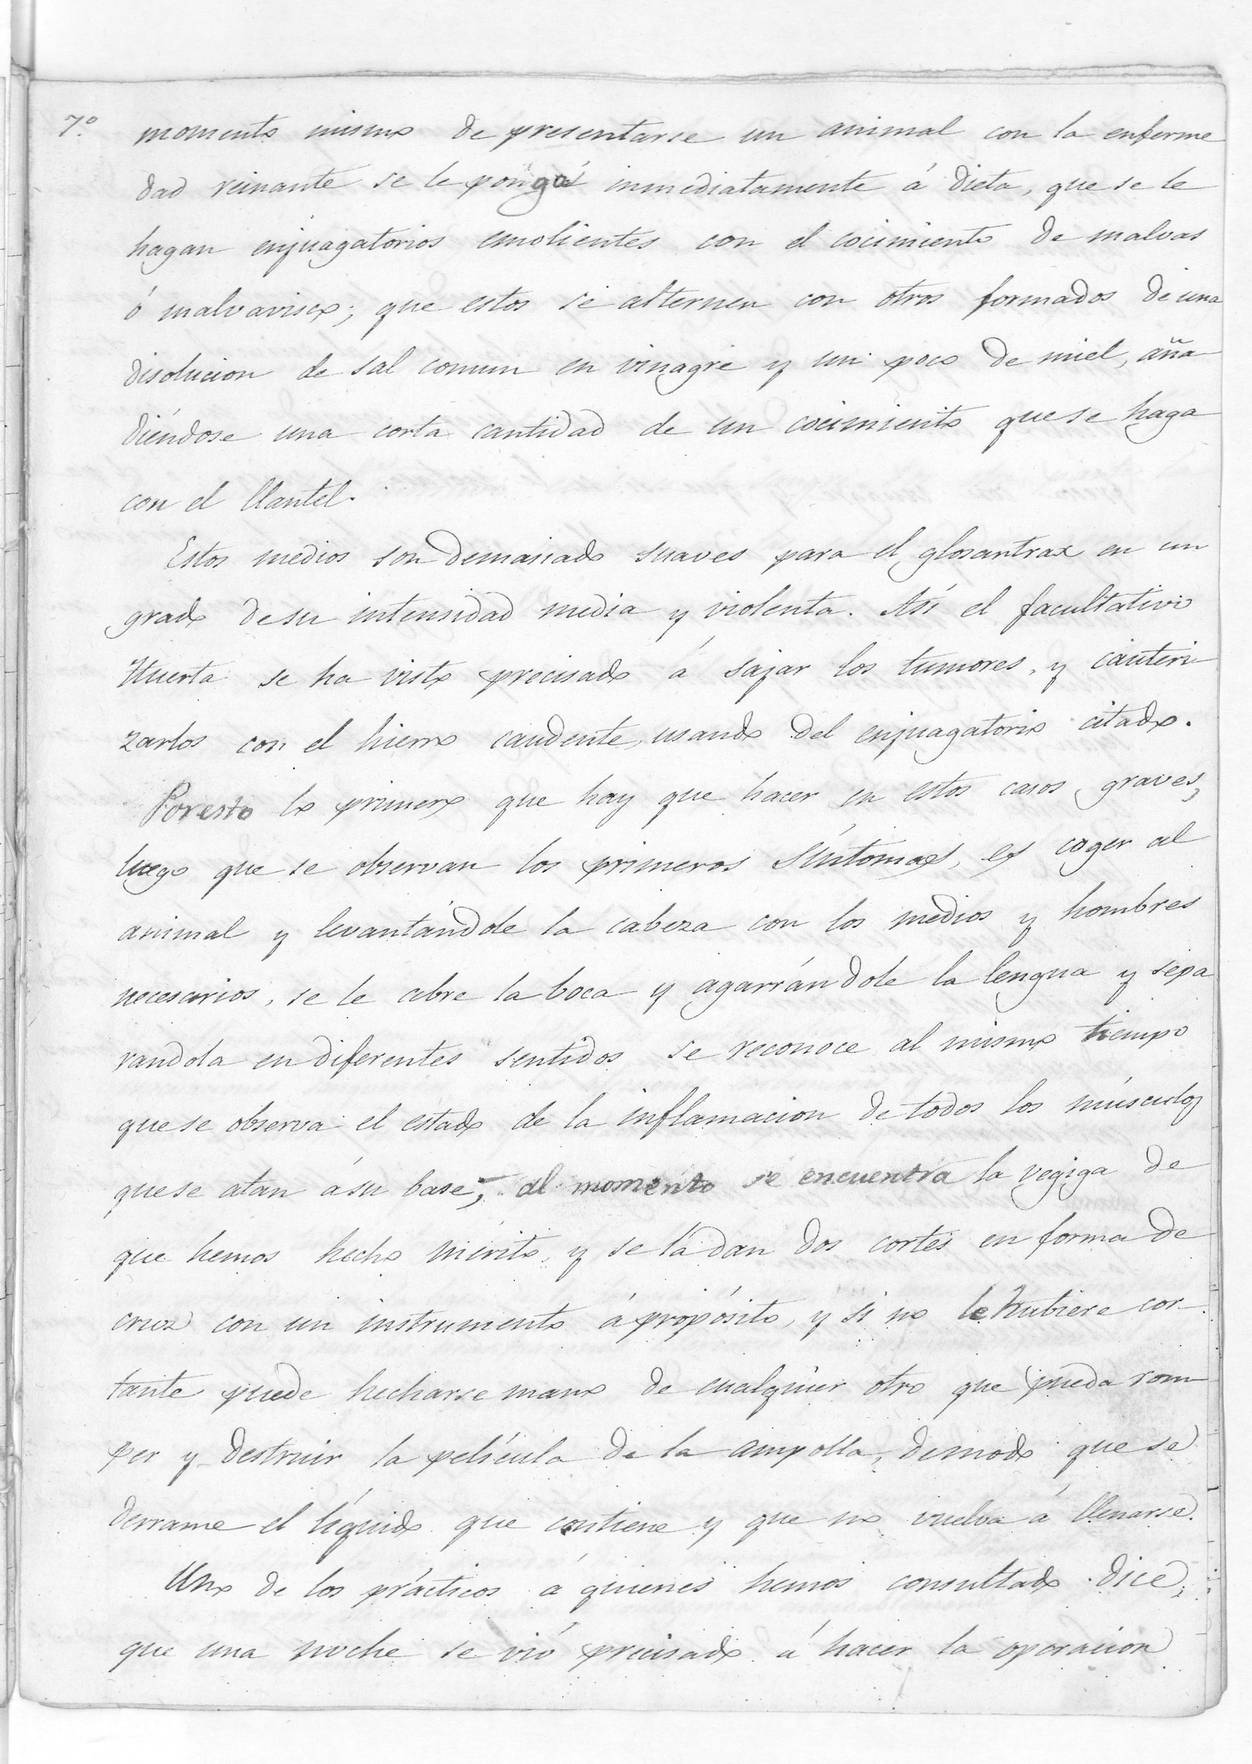 7.º momento mismo de presentarse un animal con la enferme
dad reinante se le ponga inmediatamente á dieta, que se le
hagan enjuagatorios emolientes con el cocimiento de malvas
ó malvavisco; que estos se alternen con otros formados de una
disolucion de sal comun en vinagre y un poco de miel, aña
diéndose una corta cantidad de un cocimiento que se haga
con el llantel.
Estos medios son demasiado suaves para el glosantrax en un
grado de su intensidad media y violenta. Así el facultativo
Huerta se ha visto precisado á sajar los tumores, y cauteri
zarlos con el hierro candente, usando del enjuagatorio citado.
Por esto lo primero que hay que hacer en estos casos graves,
luego que se observan los primeros síntomas, es coger al
animal y levantándole la cabeza con los medios y hombres
necesarios, se le abre la boca y agarrándole la lengua y sepa
randola en diferentes sentidos se reconoce al mismo tiempo
que se observa el estado de la inflamacion de todos los músculos
que se atan á su base; al momento se encuentra la vegiga de
que hemos hecho mérito, y se la dan dos cortes en forma de
cruz con un instrumento á propósito, y si no le hubiere cor
tante puede hecharse mano de cualquier otro que pueda rom
per y destruir la película de la ampolla, de modo que se
derrame el líquido que contiene y que no vuelva á llenarse.
Uno de los prácticos á quienes hemos consultado dice,
que una noche se vió precisado á hacer la operacion